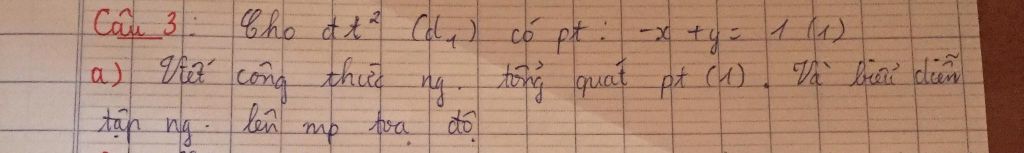 Câu 3: Cho đt² (d₁) có pt: -x + y = 1 (1)
a) Viết công thức ng. tổng quát pt (1). Và biểu diễn
tập ng. lên mp toạ độ